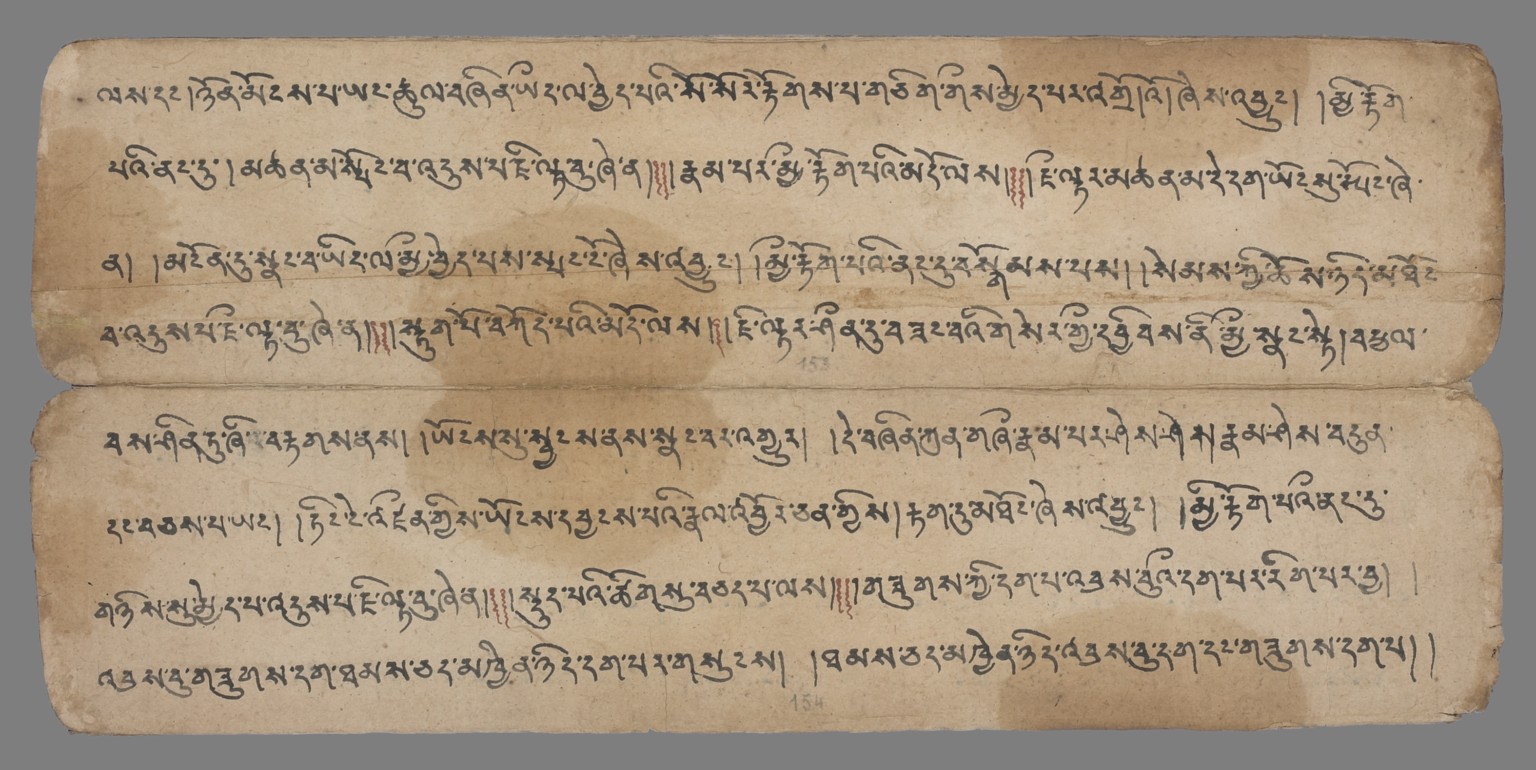 ལས་དང་།ཉོན་མོངས་པ་ཡང་ཚུལ་བཞིན་ཡིད་ལ་བྱེད་པའི་སོ་སོར་རྟོགས་པ་གཅིག་གིས་མྱེད་པར་འགྲོ།འོ།ཞེས་འབྱུང༌། །མྱི་རྟོག་
པའི་ནང་དུ་། མཚན་མ་སྤོང་བ་འདུས་པ་ཇི་ལྟ་བུ་ཞེ་ན།།རྣམ་པར་མྱི་རྟོག་པའི་མདོ་ལས།།ཇི་ལྟར་མཚན་མ་དེ་དག་ཡོང་སུ་སྤོང་ཞེ་
ན། །མངོན་དུ་སྣང་བ་ཡིད་ལ་མྱི་བྱེད་པས་སྤང་ངོ་ཞེས་འབྱུང༌། །མྱི་རྟོག་པའི་ནང་དུ་བསྙོམས་པས། །སེམས་ཀྱི་ཆོས་ཉིད་མཐོང་
བ་འདུས་པ་ཇི་ལྟ་བུ་ཞེ་ན།།སྟུག་པོ་བཀོད་པའི་མདོ་ལས།།ཇི་ལྟར་ཤིན་དུ་བཟང་བའི་གསེར་གྱི་དབྱིབས་ནི་མྱི་སྣང་སྟེ།བཕྱལ་
བས་ཤིན་ཏུ་ཞིབ་བརྟགས་ནས། །ཡོངས་སུ་སྦྱངས་ནས་སྣང་བར་འགྱུར། །དེ་བཞིན་ཀུན་གཞི་རྣམ་པར་ཤེས་ཤེས།རྣམ་ཤེས་བདུན་
དང་བཅས་པ་ཡང༌། །ཏིང་ངེ་འཛིན་གྱིས་ཡོངས་དབྱངས་པའི་རྣལ་འབྱོར་ཅན་གྱིས།རྟག་དུ་མཐོང་ཞེས་འབྱུང༌། །མྱི་རྟོག་པའི་ནང་དུ་
གཉིས་སུ་མྱེད་པ་འདུས་པ་ཇི་ལྟ་བུ་ཞེ་ན།།སྡུད་པའི་ཚིགསུ་བཅད་པ་ལས།།གཟུགས་ཀྱི་དག་པ་འབྲས་བུའི་དག་པར་རིག་པར་བྱ། །
འབྲས་བུ་གཟུགས་དག་ཐམས་ཅད་མཁྱེན་ཉིད་དག་པར་གསུངས། །ཐམས་ཅད་མཁྱེན་ཉིད་འབྲས་བུ་དག་དང་གཟུགས་དག་པ། །